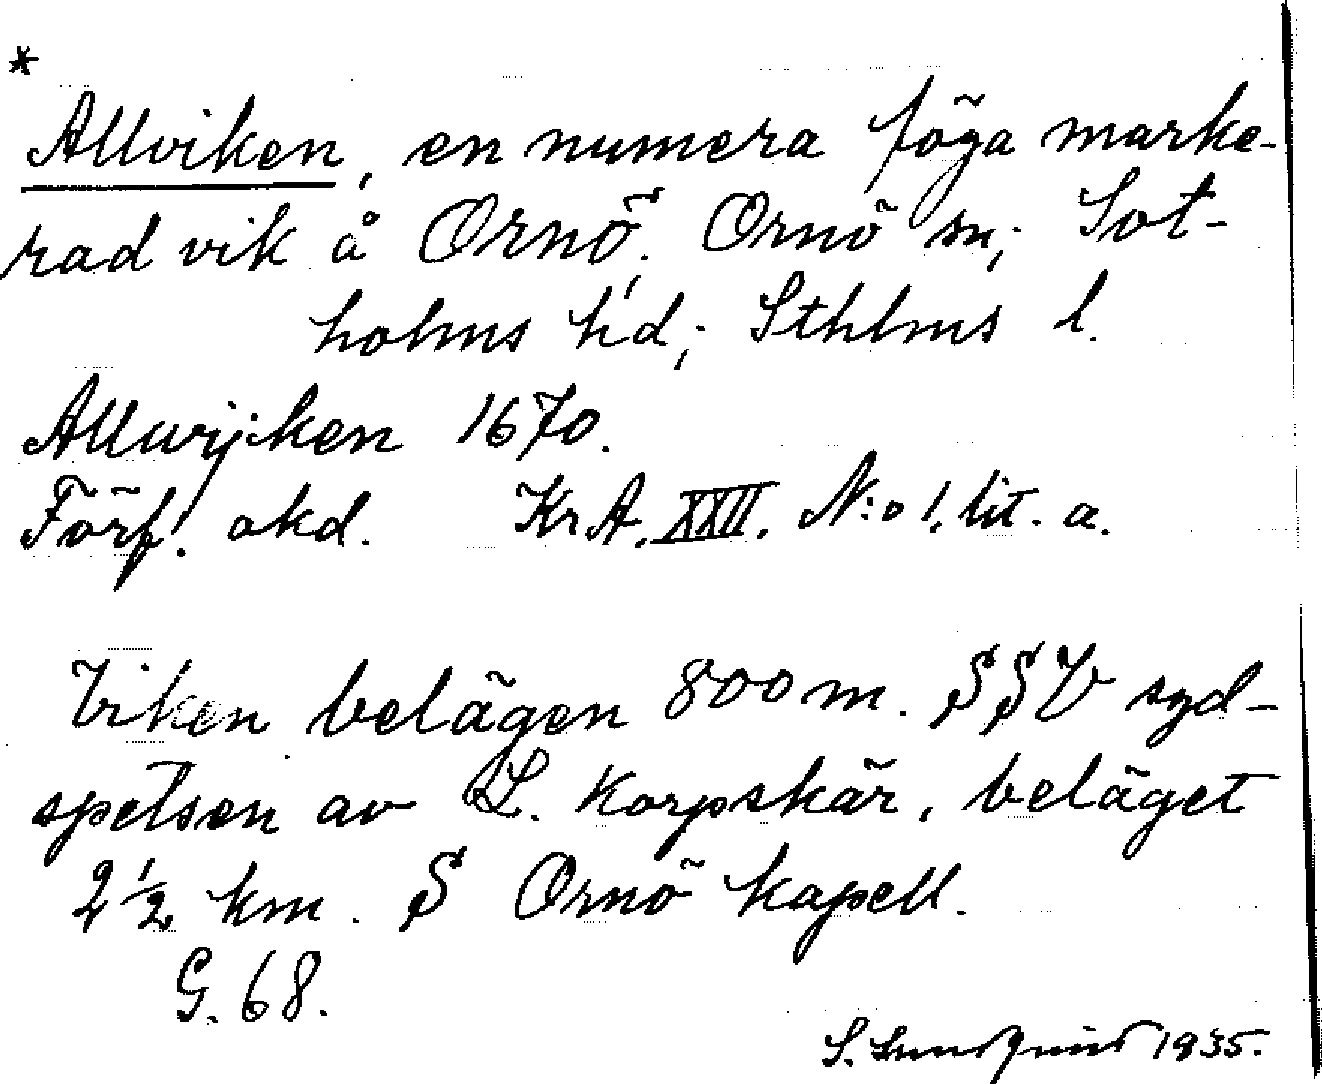 *
Allviken, en numera föga marke-
rad vik å Ornö; Ornö sn; Sot-
holms hd; Sthlms l.
Allwijken 1670.
Förf. okd. KrA. XXII. N:o 1. lit. a.
Viken belägen 800 m. SSV syd-
spetsen av L. Korpskär, beläget
2 1/2 km. S Ornö kapell.
G. 68.
S. Lundqvist 1935.